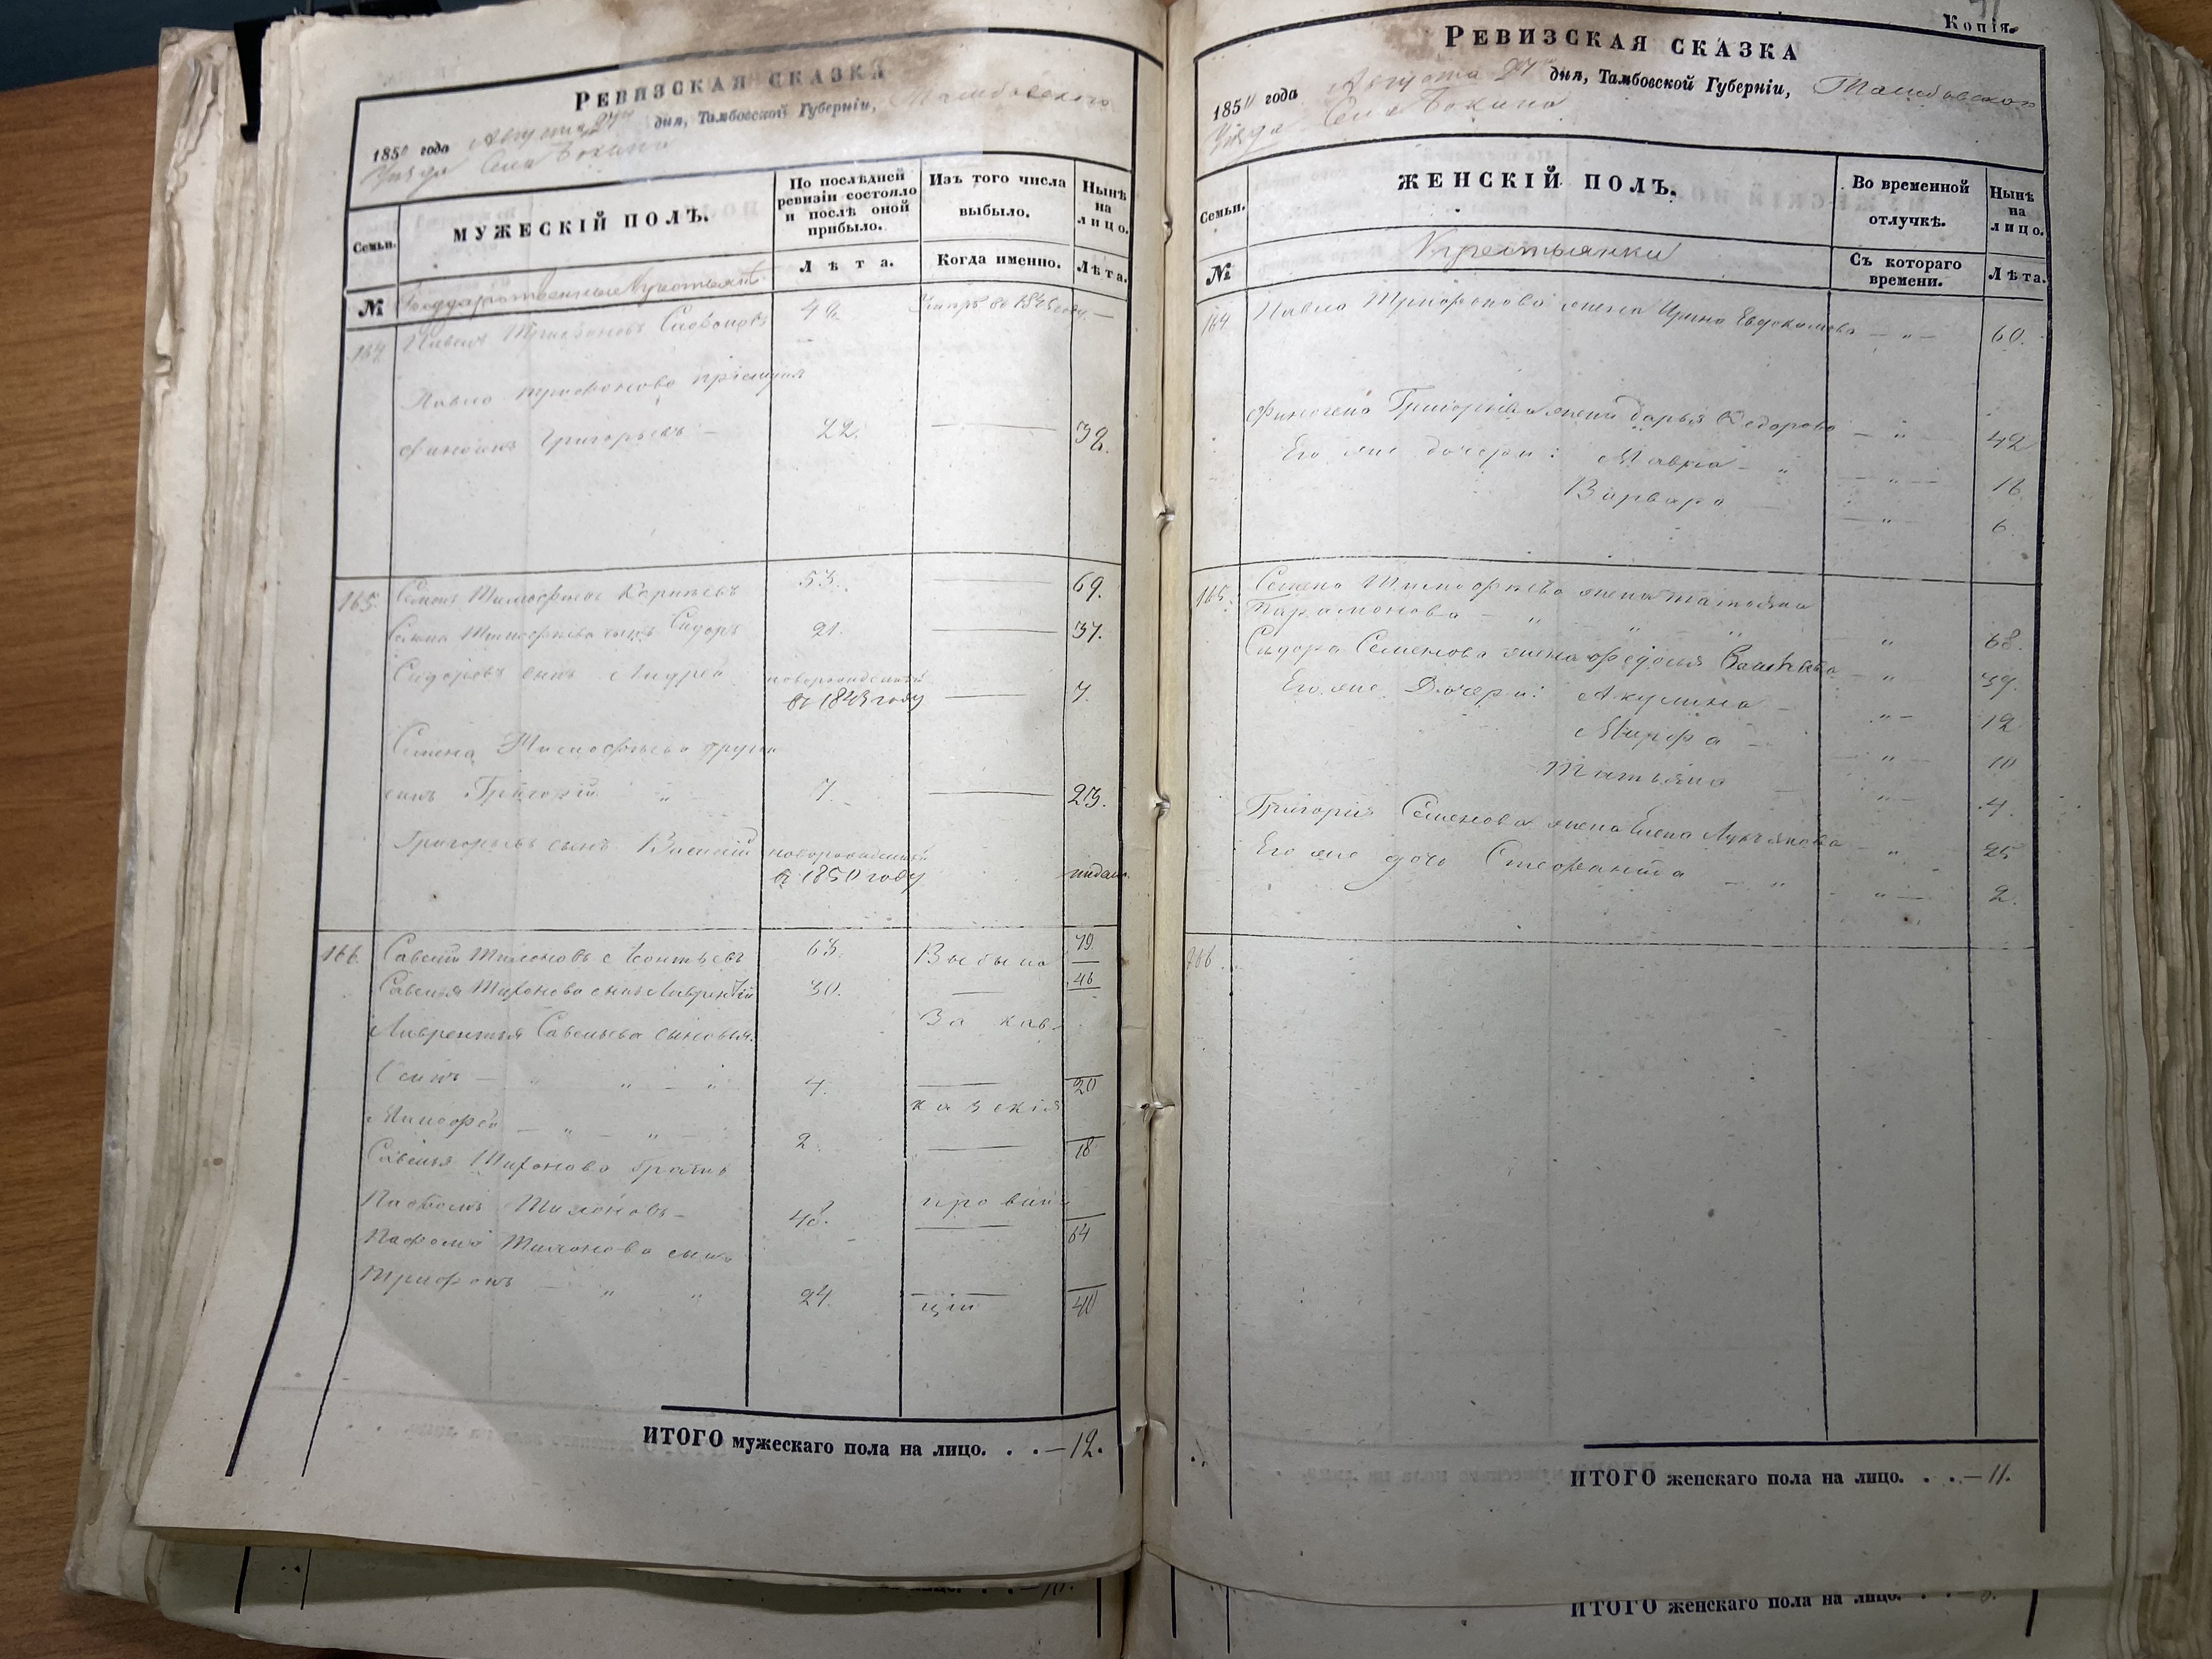 РЕВИЗСКАЯ СКАЗКА
1850 года Августа 27 дня, Тамбовской Губерніи, Тамбовского
Уѣзда Села Бокина
Семьи.
МУЖЕСКІЙ ПОЛЪ.
По послѣдней ревизіи состояло и послѣ оной прибыло.
Изъ того числа выбыло.
Нынѣ на лицо.
№
Государственные Крестьяне
Лѣта.
Когда именно.
Лѣта.
164 Павелъ Трифоновъ 42 Умеръ въ 1845 году —
Павла Трифонова пріемышъ
Финогенъ Григорьевъ — 22. — 38.
165. Семенъ Тимофѣевъ 53. — 69.
Семена Тимофѣева сынъ Сидоръ 21. — 37.
Сидоровъ сынъ Андрей новорожденный
въ 1843 году — 7.
Семена Тимофѣева другой
сынъ Григорій " 7. — 23.
Григорьевъ сынъ Василій новорожденный
въ 1850 году
166. Савелій Тихоновъ Леонтьевъ 63. Выбыло 79.
Савелья Тихонова сынъ Лаврентій 30. — 46
Лаврентія Савельева сыновья: За кав-
Осипъ — " " 4. — 20
казскія
Тимофей — " — " — 2. — 18
Савелья Тихонова братъ
Пафомъ Тихоновъ — 48. провин- 64
Пафома Тихонова сынъ
Трифонъ — " " 24. ціи 40
ИТОГО мужескаго пола на лицо. . . — 12.
Копія.
РЕВИЗСКАЯ СКАЗКА
1850 года Августа 27 дня, Тамбовской Губерніи, Тамбовского
Уѣзда Села Бокина
Семьи.
ЖЕНСКІЙ ПОЛЪ.
Во временной отлучкѣ.
Нынѣ на лицо.
№
Крестьянки
Съ котораго времени.
Лѣта.
164 Павла Трифонова жена Ирина Евдокимова — " — 60.
Финогена Григорьева жена Дарья Федорова — " — 42
Его же дочери: Мавра — " — " — 16
Варвара — " — 6.
165. Семена Тимофѣева жена Татьяна
Парамонова — " " " " 68.
Сидора Семенова жена Федосья — " — 39.
Его же Дочери: Акулина — " — 12
Марфа — " — 10
Татьяна — " — 4.
Григорія Семенова жена Елена Лукьянова — " — 25
Его же дочь Степанида — " " — 2.
166.
ИТОГО женскаго пола на лицо. . . — 11.
ИТОГО женскаго пола на лицо.